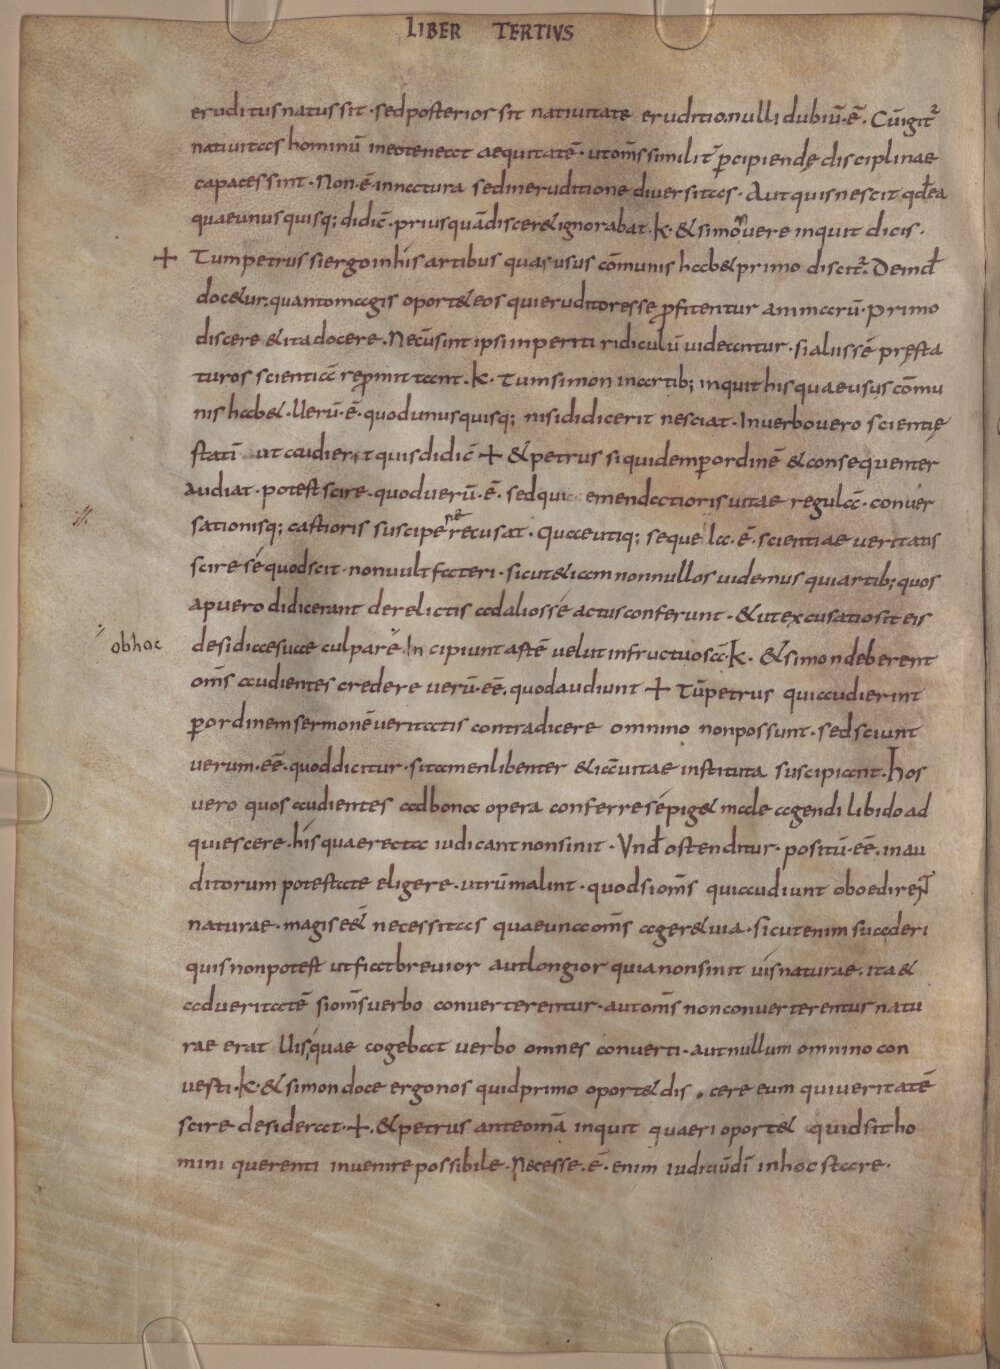 LIBER TERTIVS
eruditus natus sit · sed posterior sit nativitate eruditio nulli dubiū · ē · Cū igit̃
nativitas hominū ineo teneat aequitatē · ut om̄s similit̃ p̄cipiendę disciplinae
capaces sint · Non · ē · in natura sed in eruditione diversitas · Aut quis nescit qđ ea
quae unus quisq; didic̄ · prius quā disceret ignorabat · k · & simon vere inquit dicis ·
+ Tum petrus si ergo in his artibus quas usus cōmunis habet primo discit̃ · Deinđ
docetur · quanto magis oportet eos qui eruditores se p̄fitentur animarū · primo
discere & ita docere · Necū sint ipsi inperiti ridiculū videantur · si aliis sē pręsta
turos scientiā repmittant · k · Tum simon in artib; inquit his quae usus cōmu
nis habet · Verū · ē · quod unus quisq; nisi didicerit nesciat · In verbo vero scientię
statī ut audierit quis didic̄ + & petrus siquidem p ordinē & consequenter
audiat · potest scire · quod verū · ē · sed qui emendatioris vitae regulā · conver
sationisq; castioris suscipere recusat · Quae utiq; sequela · ē · scientiae veritatis
scire sé quod scit · non vult fateri · sicut etiam nonnullos videmus qui artib; quos
a puero didicerant derelictis ad alios sé actus conferunt · & ut excusatio sit eis
obhoc desidiae suae culpare Incipiunt artē velut infructuosā · k · & simon deberent
om̄s audientes credere verū · eē · quod audiunt + Tū petrus qui audierint
p ordinem sermonē veritatis contradicere omnino non possunt · sed sciunt
verum · eē · quod dicitur · si tamen libenter & iā vitae instituta suscipiant · hos
vero quos audientes ad bona opera conferre sé piget male agendi libido ad
quiescere · his quae recta iudicant non sinit · Vnđ ostenditur · positū · eē · in au
ditorum potestate eligere · utrū malint · quod si om̄s qui audiunt oboedirent
naturae · magis eēt necessitas quae una om̄s ageret via · sicut enim suaderi
quis non potest ut fiat brevior aut longior quia non sinit vis naturae · ita &
ad veritatē si om̄s verbo converterentur · aut om̄s non converterentur natu
rae erat Vis quae cogebat verbo omnes converti · aut nullum omnino con
verti · k · & simon doce ergo nos quid primo oportet dis cere eum qui veritatē
scire desiderat · + · & petrus ante omā inquit quaeri oportet quid sit ho
mini querenti invenire possibile · Necesse · ē · enim iuditiū dī in hoc stare ·